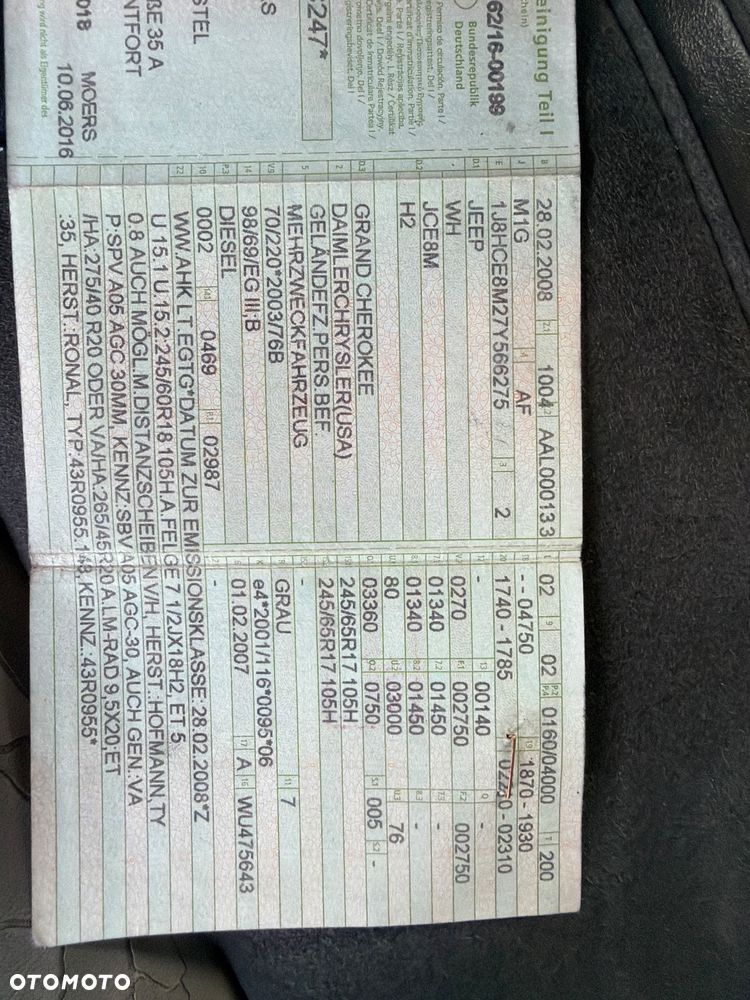 einigung Teil I
chein)
62/16-00199
Bundesrepublik
Deutschland
Permiso de circulación. Parte I /
S
STEL
ßE 35 A
NTFORT
5247*
018 MOERS
10.06.2016
B 28.02.2008 2.1 1004 2.2 AAL000133
J M1G 4 AF
E 1J8HCE8M27Y566275 3 2
D.1 JEEP
WH
JCE8M
D.2 H2
D.3 GRAND CHEROKEE
2 DAIMLERCHRYSLER(USA)
5 GELÄNDEFZ.PERS.BEF.
MEHRZWECKFAHRZEUG
V.9 70/220*2003/76B
14 98/69/EG III;B
P.3 DIESEL
10 0002 14.1 0469 P.1 02987
22 WW.AHK LT.EGTG*DATUM ZUR EMISSIONSKLASSE:28.02.2008*Z
U 15.1 U.15.2:245/60R18 105H A.FELGE 7 1/2JX18H2, ET 5
0.8 AUCH MÖGL.M.DISTANZSCHEIBEN VH, HERST.:HOFMANN,TY
P:SPV A05 AGC 30MM, KENNZ:SBV A05 AGC-30, AUCH GEN.:VA
/HA:275/40 R20 ODER VA/HA:265/45R20 A.LM-RAD 9,5X20;ET
:35, HERST.:RONAL, TYP:43R0955.148, KENNZ.:43R0955*
L 02 9 02 P.2/P.4 0160/04000 T 200
18 - - 04750 19 1870 - 1930
20 1740 - 1785 - 02310
12 - 13 00140 Q -
V.7 0270 F.1 002750 F.2 002750
7.1 01340 7.2 01450 7.3 -
8.1 01340 8.2 01450 8.3 -
U.1 80 U.2 03000 U.3 76
O.1 03360 O.2 0750 S.1 005 S.2 -
15.1 245/65R17 105H
15.2 245/65R17 105H
15.3 -
R GRAU 11 7
K e4*2001/116*0095*06
6 01.02.2007 17 A 16 WU475643
21 -
OTOMOTO